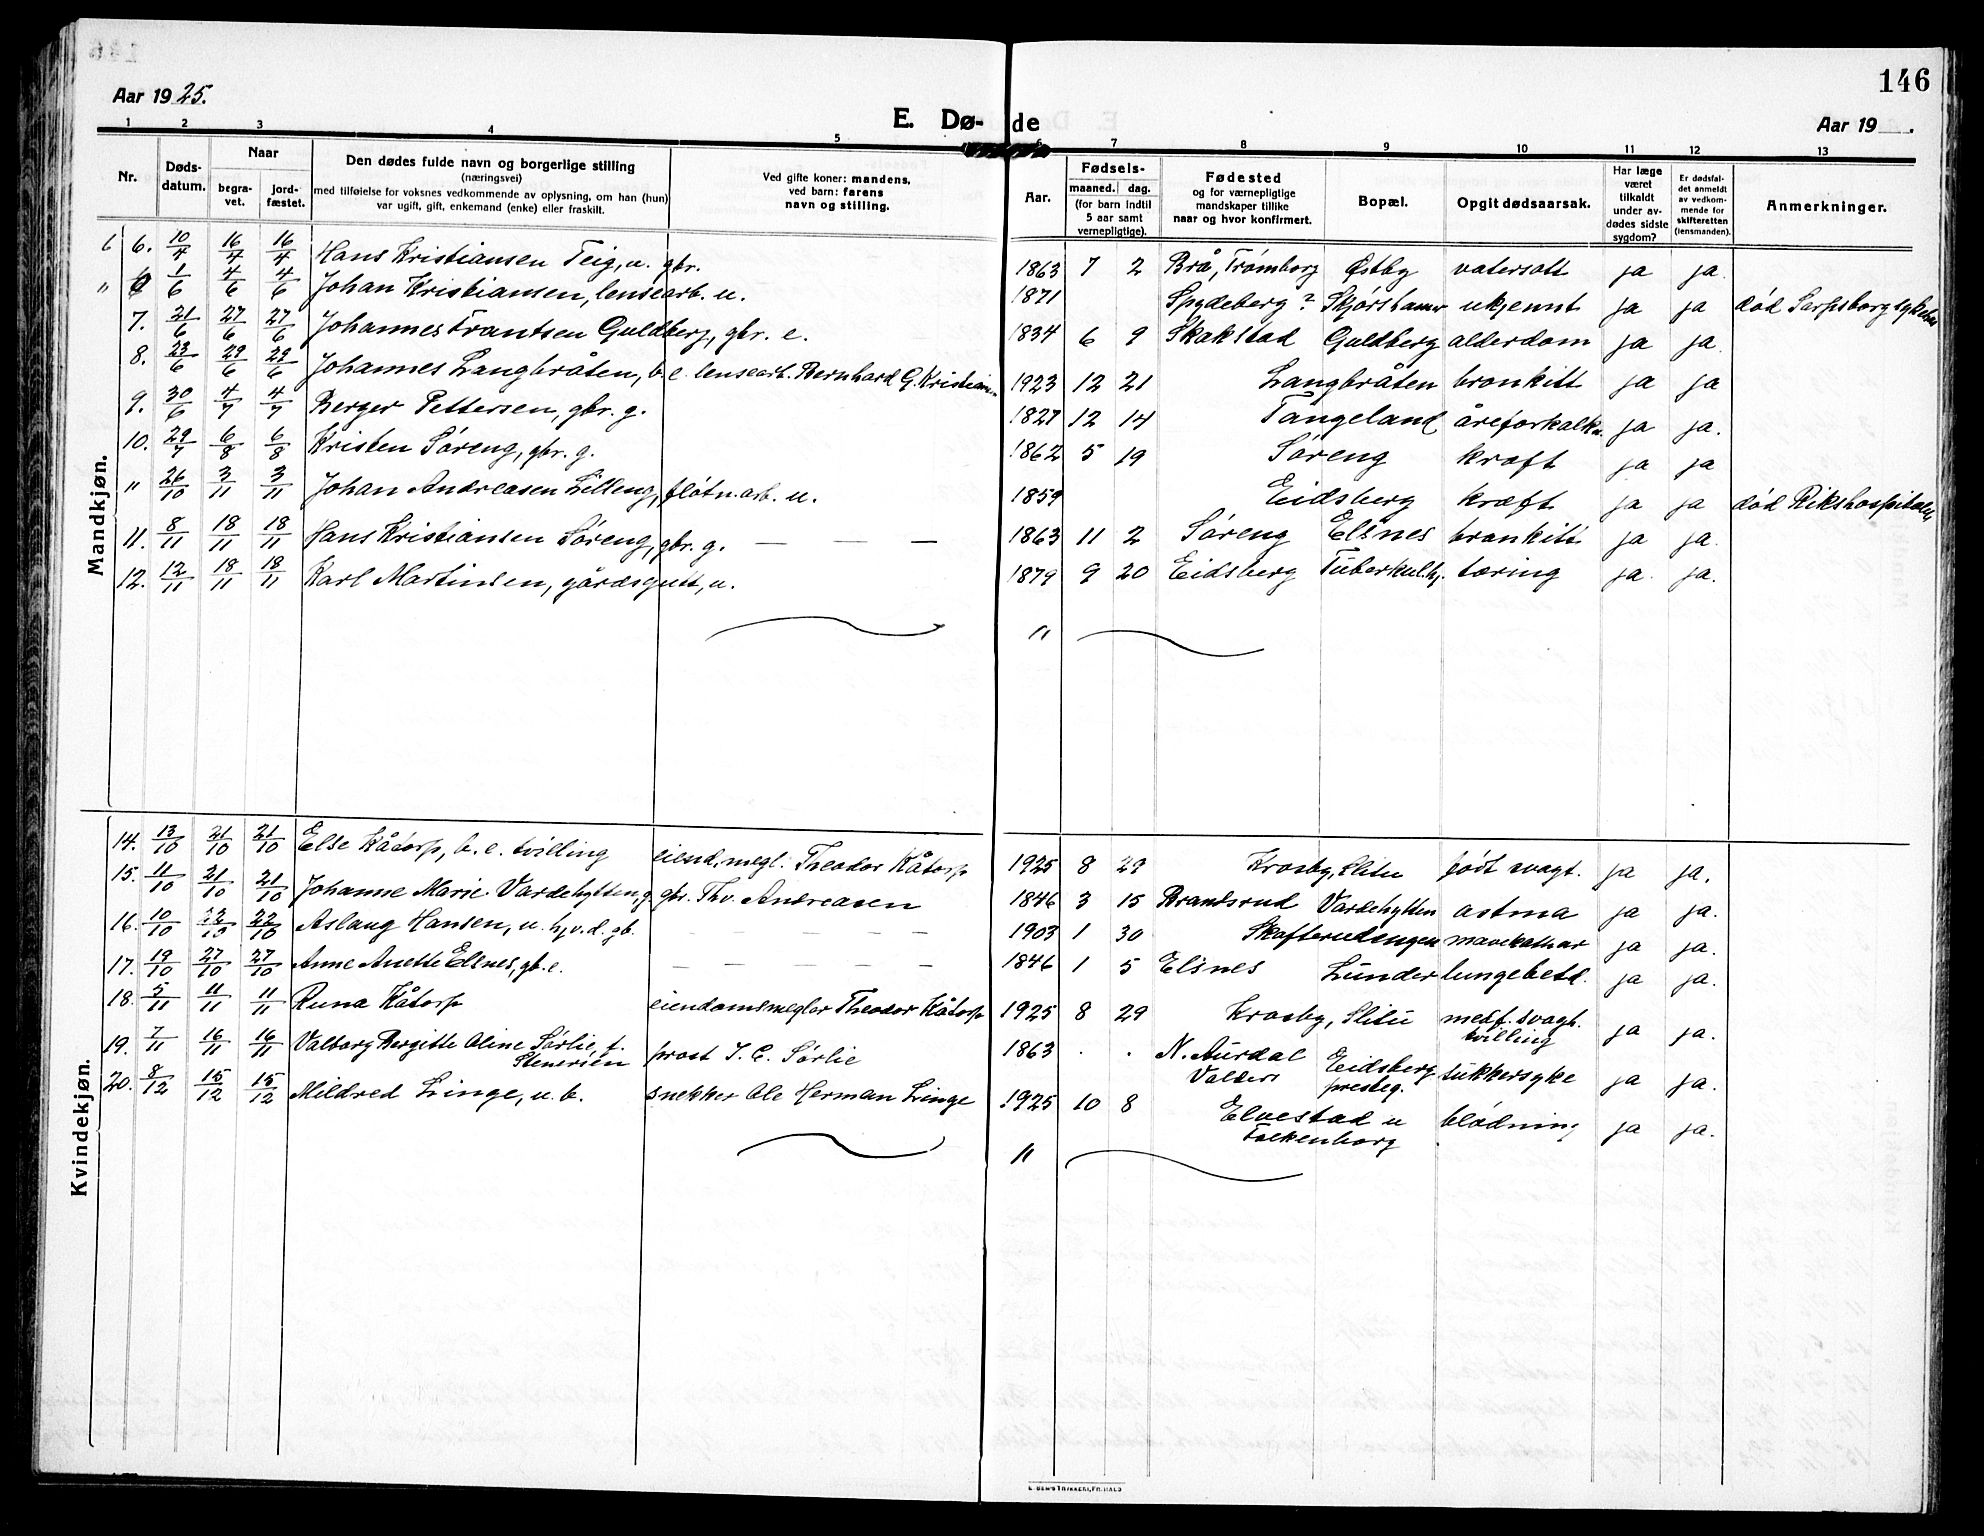 146
Aar 1925.
E. Dø- de
Aar 19 .
1 2 3 4 5 6 7 8 9 10 11 12 13
Nr.
Døds-
datum.
Naar
begra-
vet.
jord-
fæstet.
Den dødes fulde navn og borgerlige stilling
(næringsvei)
med tilføielse for voksnes vedkommende av oplysning, om han (hun)
var ugift, gift, enkemand (enke) eller fraskilt.
Ved gifte koner: mandens,
ved barn: farens
navn og stilling.
Aar.
Fødsels-
maaned. dag.
(for barn indtil
5 aar samt
vernepligtige).
Fødested
og for værnepligtige
mandskaper tillike
naar og hvor konfirmert.
Bopæl.
Opgit dødsaarsak.
Har læge
været
tilkaldt
under av-
dødes sidste
sygdom?
Er dødsfal-
det anmeldt
av vedkom-
mende for
skifteretten
(lensmanden).
Anmerkninger.
Mandkjøn.
6 6. 10/4 16/4 16/4 Hans Kristiansen Teig, u. gbr. 1863 7 2 Brå, Trømborg Østby vatersott ja ja.
" 1/6 4/6 4/6 Johan Kristiansen, lensearb. u. 1871 Spydeberg? Skjørshamar ukjennt ja ja død Sarpsborg sykehus
7. 21/6 27/6 27/6 Johannes Frantsen Guldberg, gbr. e. 1834 6 9 Skakstad Guldberg alderdom ja ja.
8. 23/6 29/6 29/6 Johannes Langbråten, b. e. lensearb. Bernhard G. Kristiansen 1923 12 21 Langbråten bronkitt ja ja
9. 30/6 4/7 4/7 Berger Pettersen, gbr. g. 1827 12 14 Tangeland åreforkalkn. ja ja.
10. 29/7 6/8 6/8 Kristen Søreng, gbr. g. 1862 5 19 Søreng kræft ja ja
" 26/10 3/11 3/11 Johan Andreasen Lilleng, fløtn.arb. u. 1859 Eidsberg kræft ja ja død Rikshospitalet
11. 8/11 18/11 18/11 Hans Kristiansen Søreng, gbr. g. — — — 1863 11 2 Søreng Elsnes bronkitt ja ja.
12. 12/11 18/11 18/11 Karl Martinsen, gårdsgutt, u. 1879 9 20 Eidsberg Tuberkul.hj. tæring ja. ja.
"
Kvindekjøn.
14. 13/10 21/10 21/10 Else Kåtorp, b. e. tvilling eiend.megl. Theodor Kåtorp 1925 8 29 Krosby, Slitu født svagt. ja ja.
15. 11/10 21/10 21/10 Johanne Marie Vardehytten, g. gbr. Thv. Andreasen 1846 3 15 Brandsrud Vardehytten astma ja ja.
16. 10/10 22/10 22/10 Aslaug Hansen, u. hj.v.d. gb. — — — — 1903 1 30 Skofterudengen mavekatharr ja ja.
17. 19/10 27/10 27/10 Anne Anette Elsnes, gb. e. — — — — 1846 1 5 Elsnes Lunder lungebetd. ja ja.
18. 5/11 11/11 11/11 Runa Kåtorp eiendomsmegler Theodor Kåtorp 1925 8 29 Krosby, Slitu medf. svagh. ja ja.
tvilling
19. 7/11 16/11 16/11 Valborg Bergitte Oline Sørlie f. prost J. E. Sørlie 1863 . . N. Aurdal Eidsberg sukkersyke ja ja.
Stenersen Valdres presteg.
20. 8/12 15/12 15/12 Mildred Linge, u. b. snekker Ole Herman Linge 1925 10 8 Elvestad u blødning ja ja.
Falkenborg
"
E. SEM'S TRYKKERI, FR.HALD